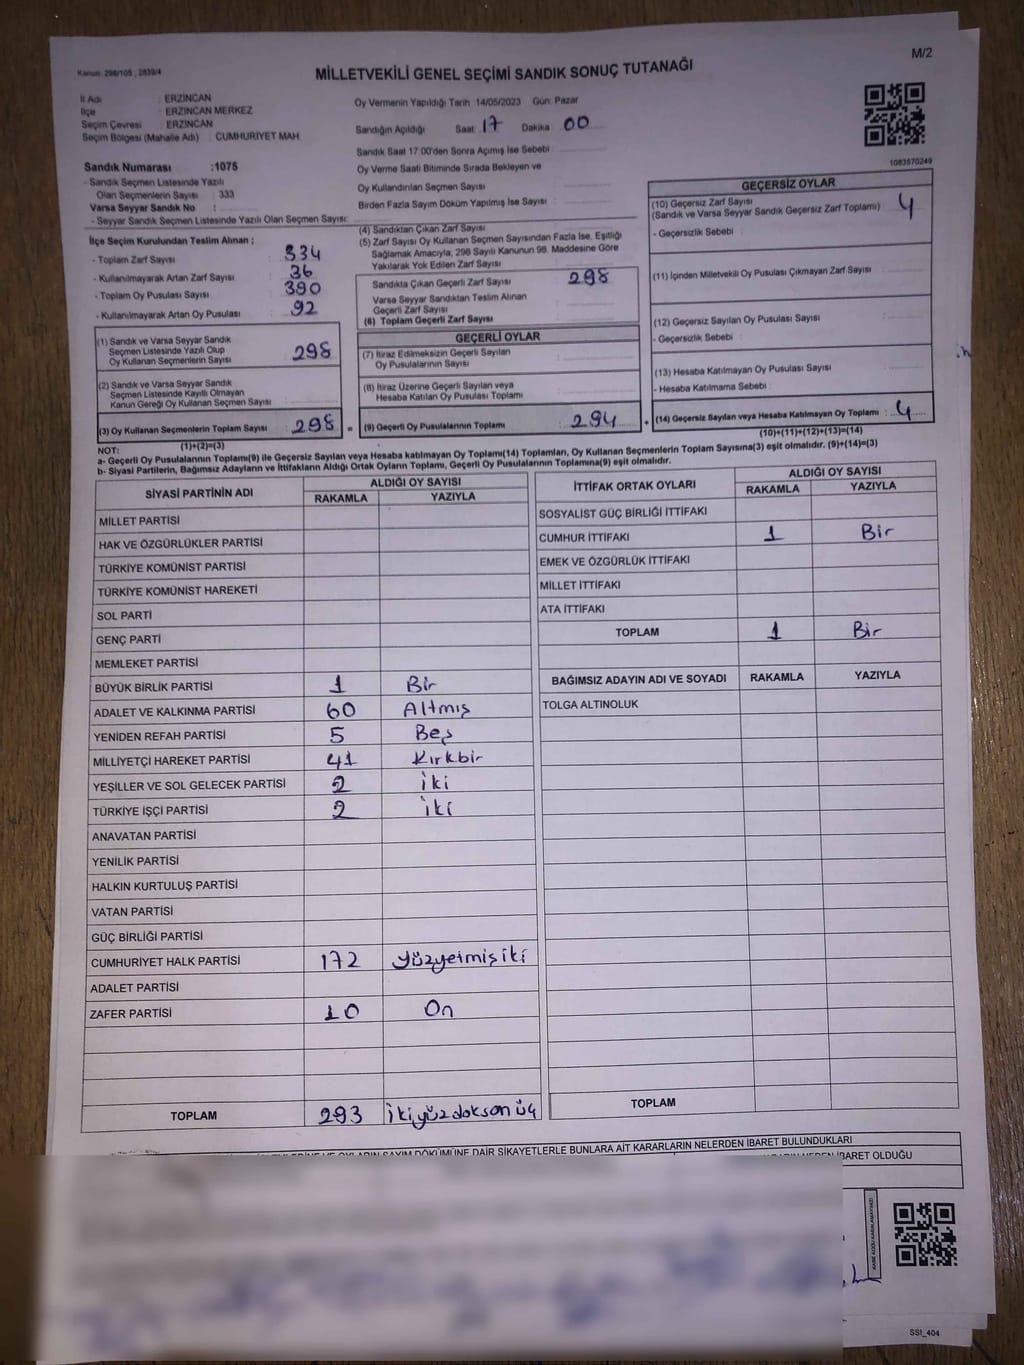 M/2
Kanun: 298/105 , 2839/4
MİLLETVEKİLİ GENEL SEÇİMİ SANDIK SONUÇ TUTANAĞI
İl Adı : ERZİNCAN
İlçe : ERZİNCAN MERKEZ
Seçim Çevresi : ERZİNCAN
Seçim Bölgesi (Mahalle Adı) : CUMHURİYET MAH.
Oy Vermenin Yapıldığı Tarih 14/05/2023 Gün: Pazar
Sandığın Açıldığı Saat 17 Dakika 00
Sandık Saat 17:00'den Sonra Açımış İse Sebebi :
Oy Verme Saati Bitiminde Sırada Bekleyen ve
Oy Kullandırılan Seçmen Sayısı
Birden Fazla Sayım Döküm Yapılmış İse Sayısı
1083570249
Sandık Numarası :1075
- Sandık Seçmen Listesinde Yazılı
Olan Seçmenlerin Sayısı : 333
Varsa Seyyar Sandık No :
- Seyyar Sandık Seçmen Listesinde Yazılı Olan Seçmen Sayısı:
İlçe Seçim Kurulundan Teslim Alınan ;
- Toplam Zarf Sayısı : 334
- Kullanılmayarak Artan Zarf Sayısı : 36
- Toplam Oy Pusulası Sayısı : 390
- Kullanılmayarak Artan Oy Pusulası : 92
(1) Sandık ve Varsa Seyyar Sandık
Seçmen Listesinde Yazılı Olup
Oy Kullanan Seçmenlerin Sayısı : 298
(2) Sandık ve Varsa Seyyar Sandık
Seçmen Listesinde Kayıtlı Olmayan
Kanun Gereği Oy Kullanan Seçmen Sayısı :
(3) Oy Kullanan Seçmenlerin Toplam Sayısı : 298 =
(1)+(2)=(3)
(4) Sandıktan Çıkan Zarf Sayısı
(5) Zarf Sayısı Oy Kullanan Seçmen Sayısından Fazla İse, Eşitliği
Sağlamak Amacıyla, 298 Sayılı Kanunun 98. Maddesine Göre
Yakılarak Yok Edilen Zarf Sayısı
Sandıkta Çıkan Geçerli Zarf Sayısı : 298
Varsa Seyyar Sandıktan Teslim Alınan
Geçerli Zarf Sayısı
(6) Toplam Geçerli Zarf Sayısı
GEÇERLİ OYLAR
(7) İtiraz Edilmeksizin Geçerli Sayılan
Oy Pusulalarının Sayısı
(8) İtiraz Üzerine Geçerli Sayılan veya
Hesaba Katılan Oy Pusulası Toplamı
(9) Geçerli Oy Pusulalarının Toplamı : 294 +
GEÇERSİZ OYLAR
(10) Geçersiz Zarf Sayısı
(Sandık ve Varsa Seyyar Sandık Geçersiz Zarf Toplamı) : 4
- Geçersizlik Sebebi :
(11) İçinden Milletvekili Oy Pusulası Çıkmayan Zarf Sayısı
(12) Geçersiz Sayılan Oy Pusulası Sayısı
- Geçersizlik Sebebi :
(13) Hesaba Katılmayan Oy Pusulası Sayısı
- Hesaba Katılmama Sebebi
(14) Geçersiz Sayılan veya Hesaba Katılmayan Oy Toplamı : 4
(10)+(11)+(12)+(13)=(14)
NOT:
a- Geçerli Oy Pusulalarının Toplamı(9) ile Geçersiz Sayılan veya Hesaba katılmayan Oy Toplamı(14) Toplamları, Oy Kullanan Seçmenlerin Toplam Sayısına(3) eşit olmalıdır. (9)+(14)=(3)
b- Siyasi Partilerin, Bağımsız Adayların ve İttifakların Aldığı Ortak Oyların Toplamı, Geçerli Oy Pusulalarının Toplamına(9) eşit olmalıdır.
SİYASİ PARTİNİN ADI ALDIĞI OY SAYISI
RAKAMLA YAZIYLA
MİLLET PARTİSİ
HAK VE ÖZGÜRLÜKLER PARTİSİ
TÜRKİYE KOMÜNİST PARTİSİ
TÜRKİYE KOMÜNİST HAREKETİ
SOL PARTİ
GENÇ PARTİ
MEMLEKET PARTİSİ
BÜYÜK BİRLİK PARTİSİ 1 Bir
ADALET VE KALKINMA PARTİSİ 60 Altmış
YENİDEN REFAH PARTİSİ 5 Beş
MİLLİYETÇİ HAREKET PARTİSİ 41 Kırkbir
YEŞİLLER VE SOL GELECEK PARTİSİ 2 iki
TÜRKİYE İŞÇİ PARTİSİ 2 iki
ANAVATAN PARTİSİ
YENİLİK PARTİSİ
HALKIN KURTULUŞ PARTİSİ
VATAN PARTİSİ
GÜÇ BİRLİĞİ PARTİSİ
CUMHURİYET HALK PARTİSİ 172 Yüzyetmişiki
ADALET PARTİSİ
ZAFER PARTİSİ 10 On
TOPLAM 293 İkiyüzdoksanüç
İTTİFAK ORTAK OYLARI ALDIĞI OY SAYISI
RAKAMLA YAZIYLA
SOSYALİST GÜÇ BİRLİĞİ İTTİFAKI
CUMHUR İTTİFAKI 1 Bir
EMEK VE ÖZGÜRLÜK İTTİFAKI
MİLLET İTTİFAKI
ATA İTTİFAKI
TOPLAM 1 Bir
BAĞIMSIZ ADAYIN ADI VE SOYADI RAKAMLA YAZIYLA
TOLGA ALTINOLUK
TOPLAM
SAYIM DÖKÜMÜNE DAİR ŞİKAYETLERLE BUNLARA AİT KARARLARIN NELERDEN İBARET BULUNDUKLARI
İBARET OLDUĞU
SSI_404